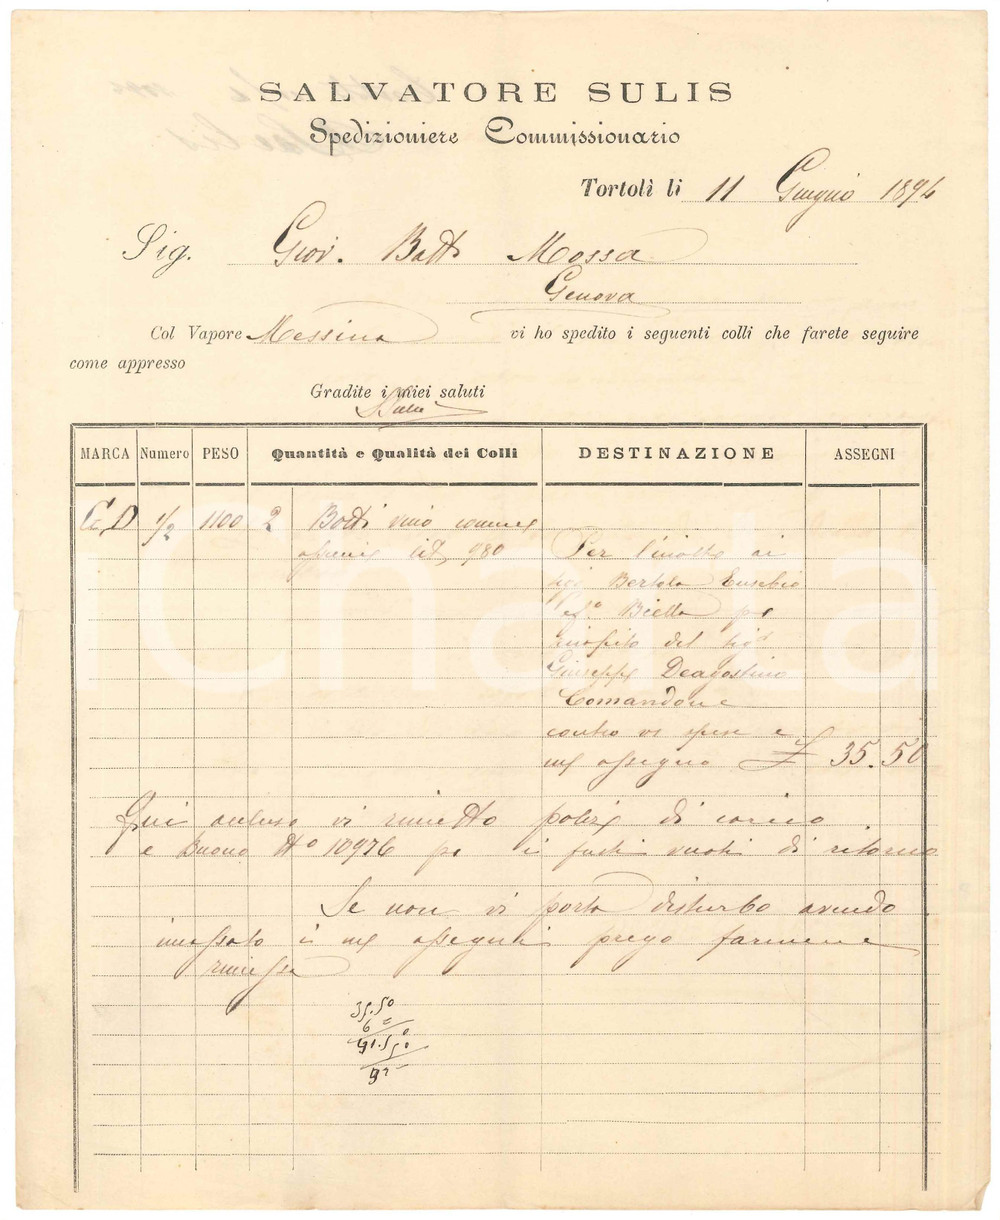 SALVATORE SULIS
Spedizioniere Commissionario
Tortolì li 11 Giugno 1894
Sig. Giov. Batt. Mossa
Genova
Col Vapore Messina vi ho spedito i seguenti colli che farete seguire
come appresso
Gradite i miei saluti
Sulis
MARCA Numero PESO Quantità e Qualità dei Colli DESTINAZIONE ASSEGNI
G. D 1/2 1100 2 Botti vino comune
980
Per l'inoltro ai
Sigi Bertola Eusebio
Biella pr
del Sigr
Giuseppe Deagostino
Comandone
contro vs spese e
ms assegno £ 35.50
Qui accluso vi rimetto polize di carico
e Buono No 10976 pr i fusti vuoti di ritorno
Se non vi porta disturbo avendo
incassato i ms assegni prego farmene
rimessa
35.50
6 =
41.50